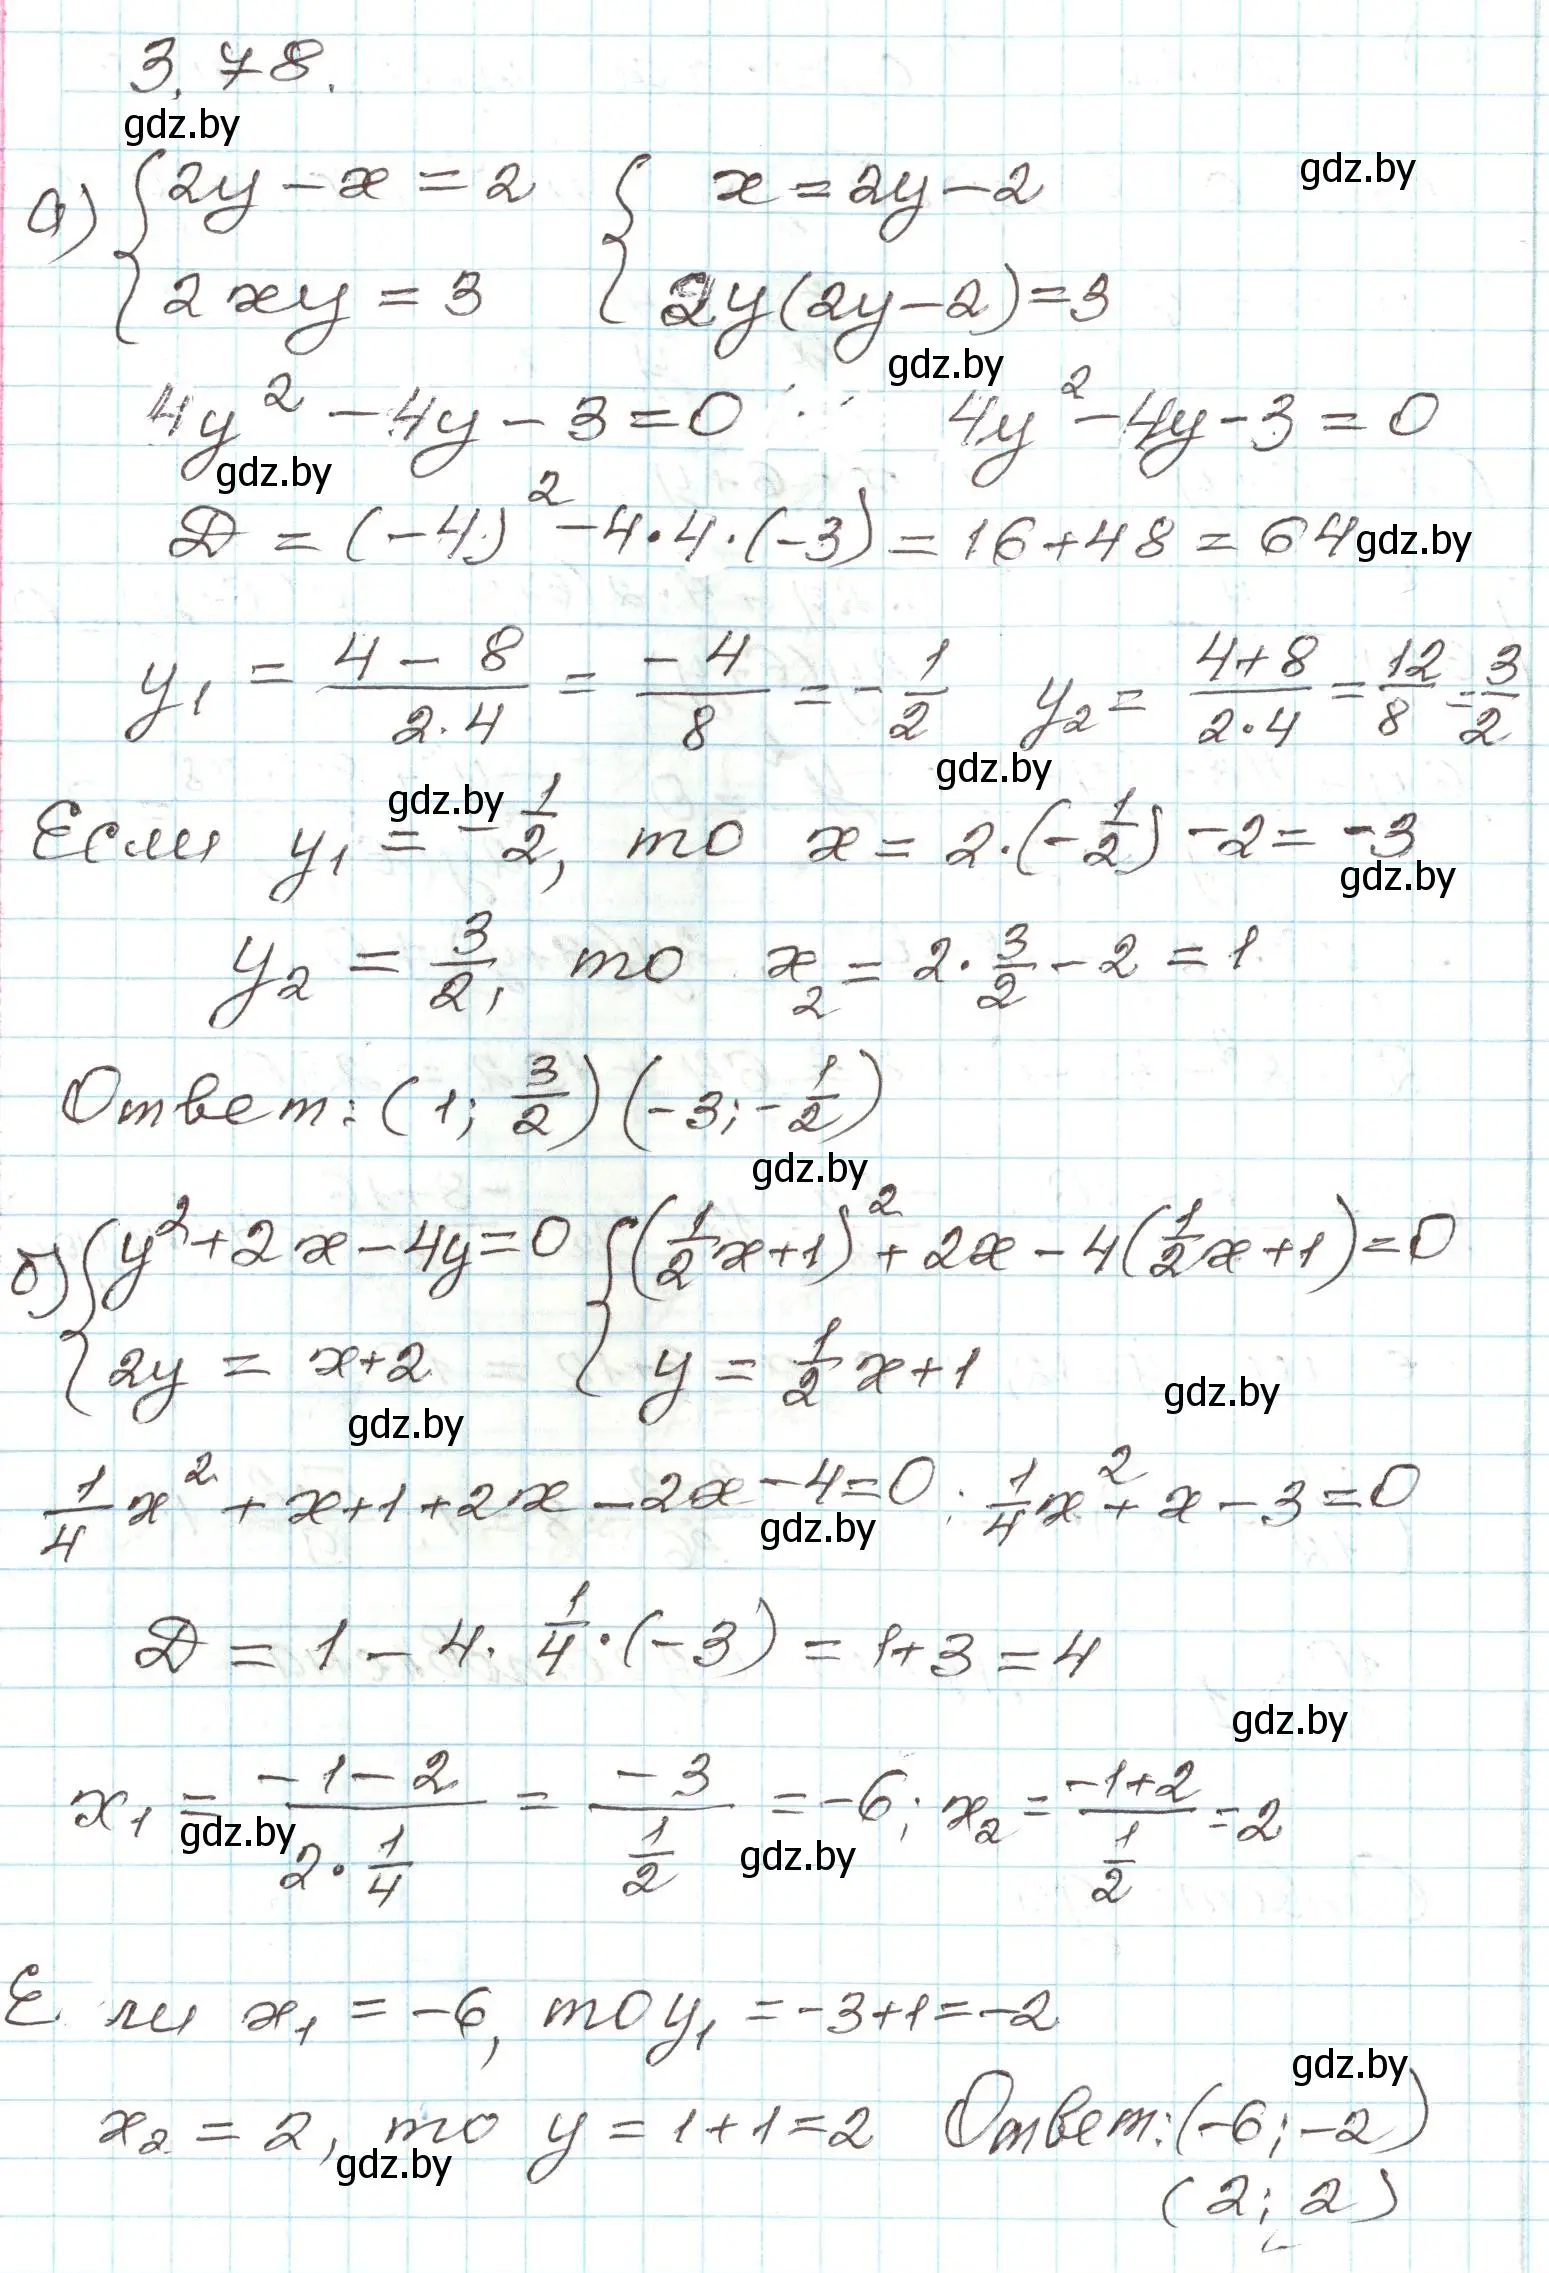 3.78.
gdz.by
а) { 2y − x = 2 { x = 2y − 2 gdz.by
{ 2xy = 3 { 2y(2y − 2) = 3
gdz.by
4y² − 4y − 3 = 0 4y² − 4y − 3 = 0
gdz.by
D = (−4)² − 4·4·(−3) = 16 + 48 = 64 gdz.by
y₁ = (4 − 8)/(2·4) = −4/8 = −1/2 y₂ = (4+8)/(2·4) = 12/8 = 3/2
gdz.by
gdz.by
Если y₁ = −1/2, то x = 2·(−1/2) − 2 = −3
gdz.by
y₂ = 3/2, то x₂ = 2·3/2 − 2 = 1
Ответ: (1; 3/2) (−3; −1/2)
gdz.by
б) { y² + 2x − 4y = 0 { (1/2x+1)² + 2x − 4(1/2x+1) = 0
{ 2y = x+2 { y = 1/2x+1
gdz.by
gdz.by
1/4x² + x+1+2x − 2x − 4 = 0 1/4x² + x − 3 = 0
gdz.by
D = 1 − 4·1/4·(−3) = 1+3 = 4
gdz.by
x₁ = (−1−2)/(2·1/4) = −3/(1/2) = −6; x₂ = (−1+2)/(1/2) = 2
gdz.by gdz.by
Е ли x₁ = −6, то y₁ = −3+1 = −2
gdz.by
x₂ = 2, то y = 1+1 = 2 Ответ: (−6; −2)
gdz.by
(2; 2)